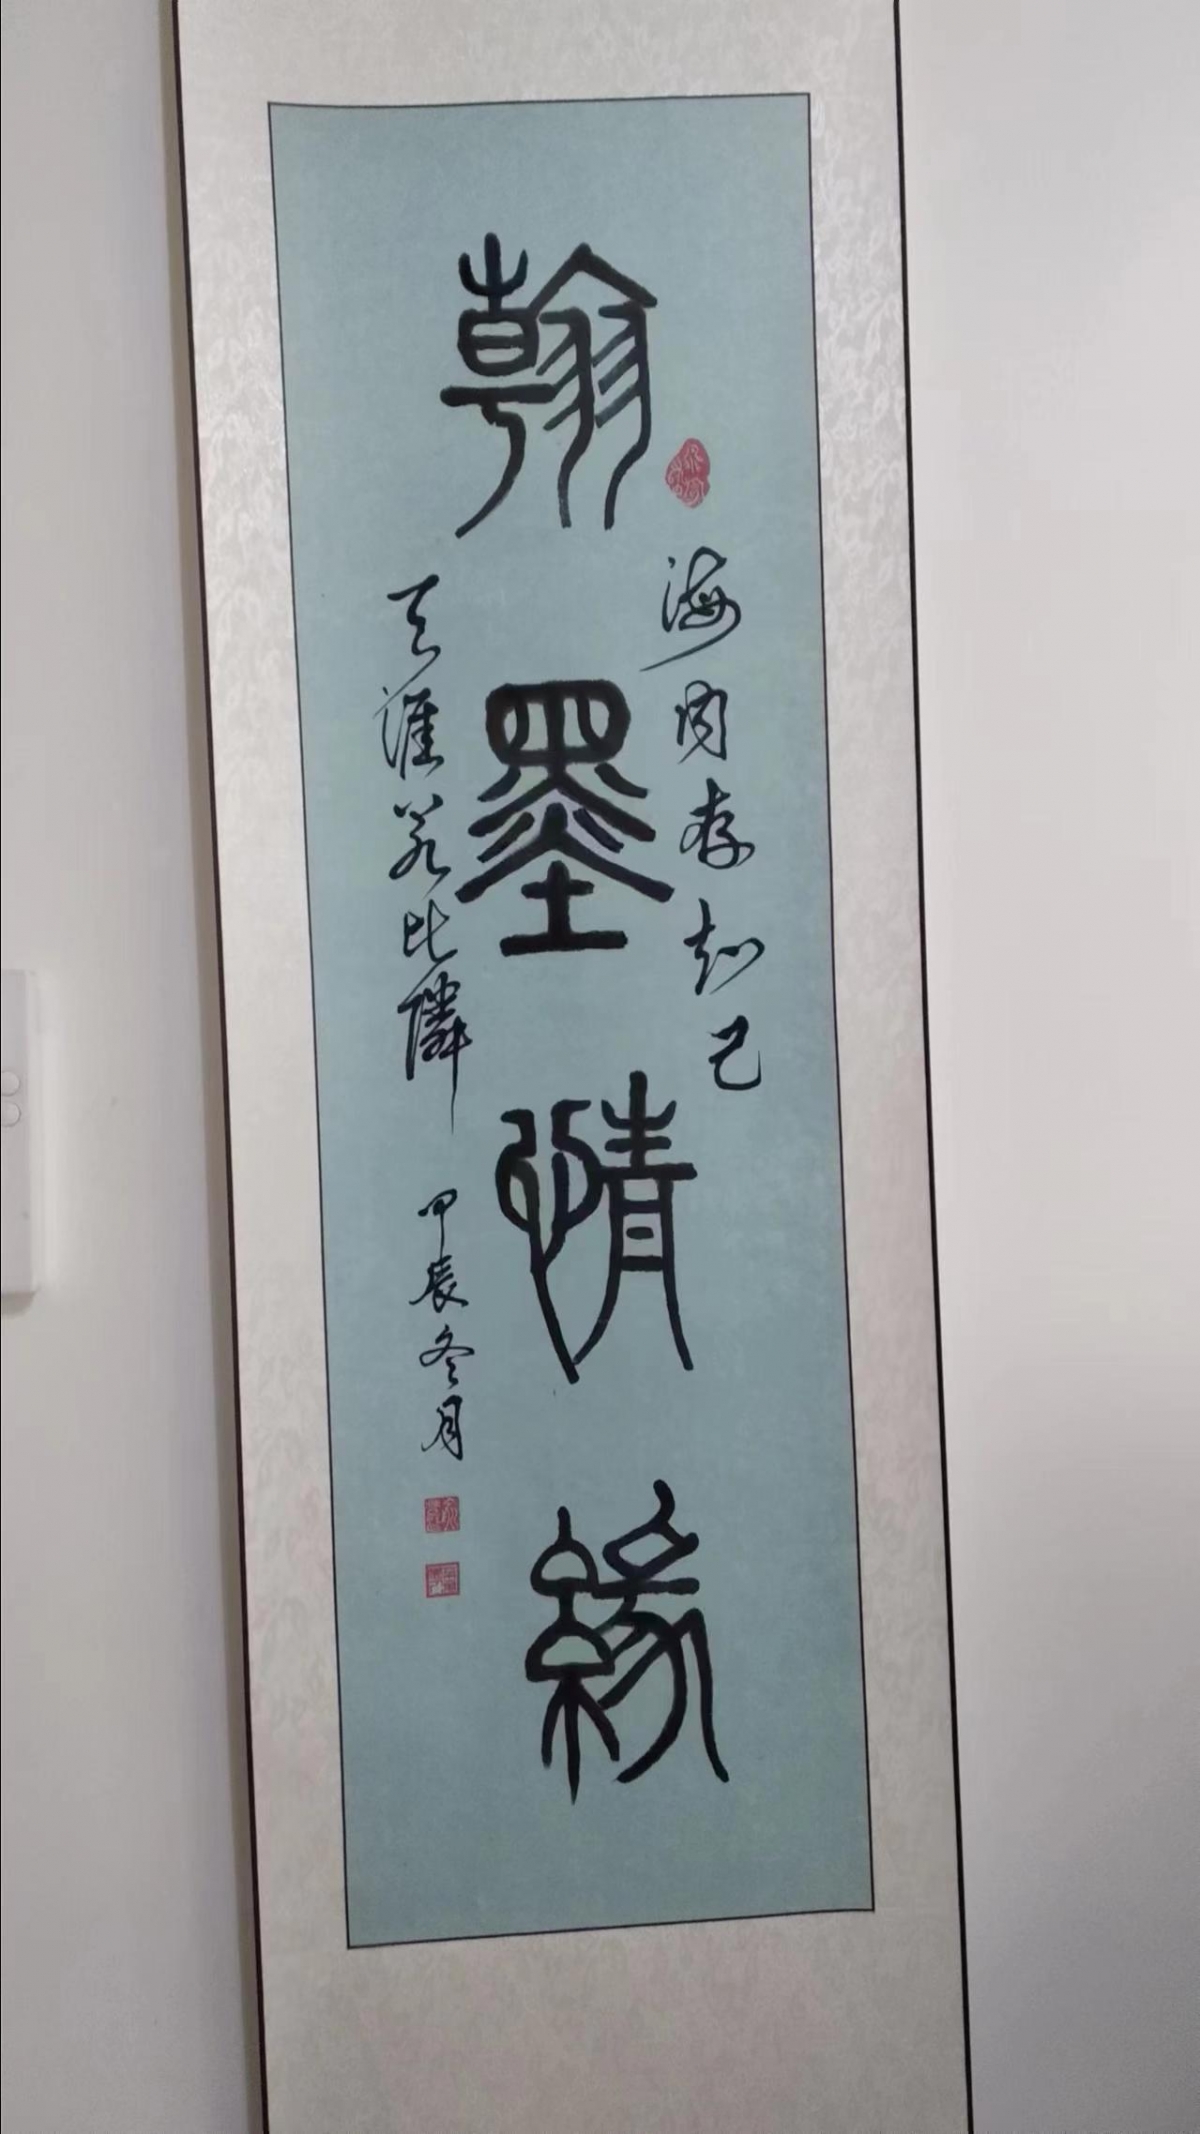 翰墨情緣
海内存知己
天涯若比隣
甲辰冬月